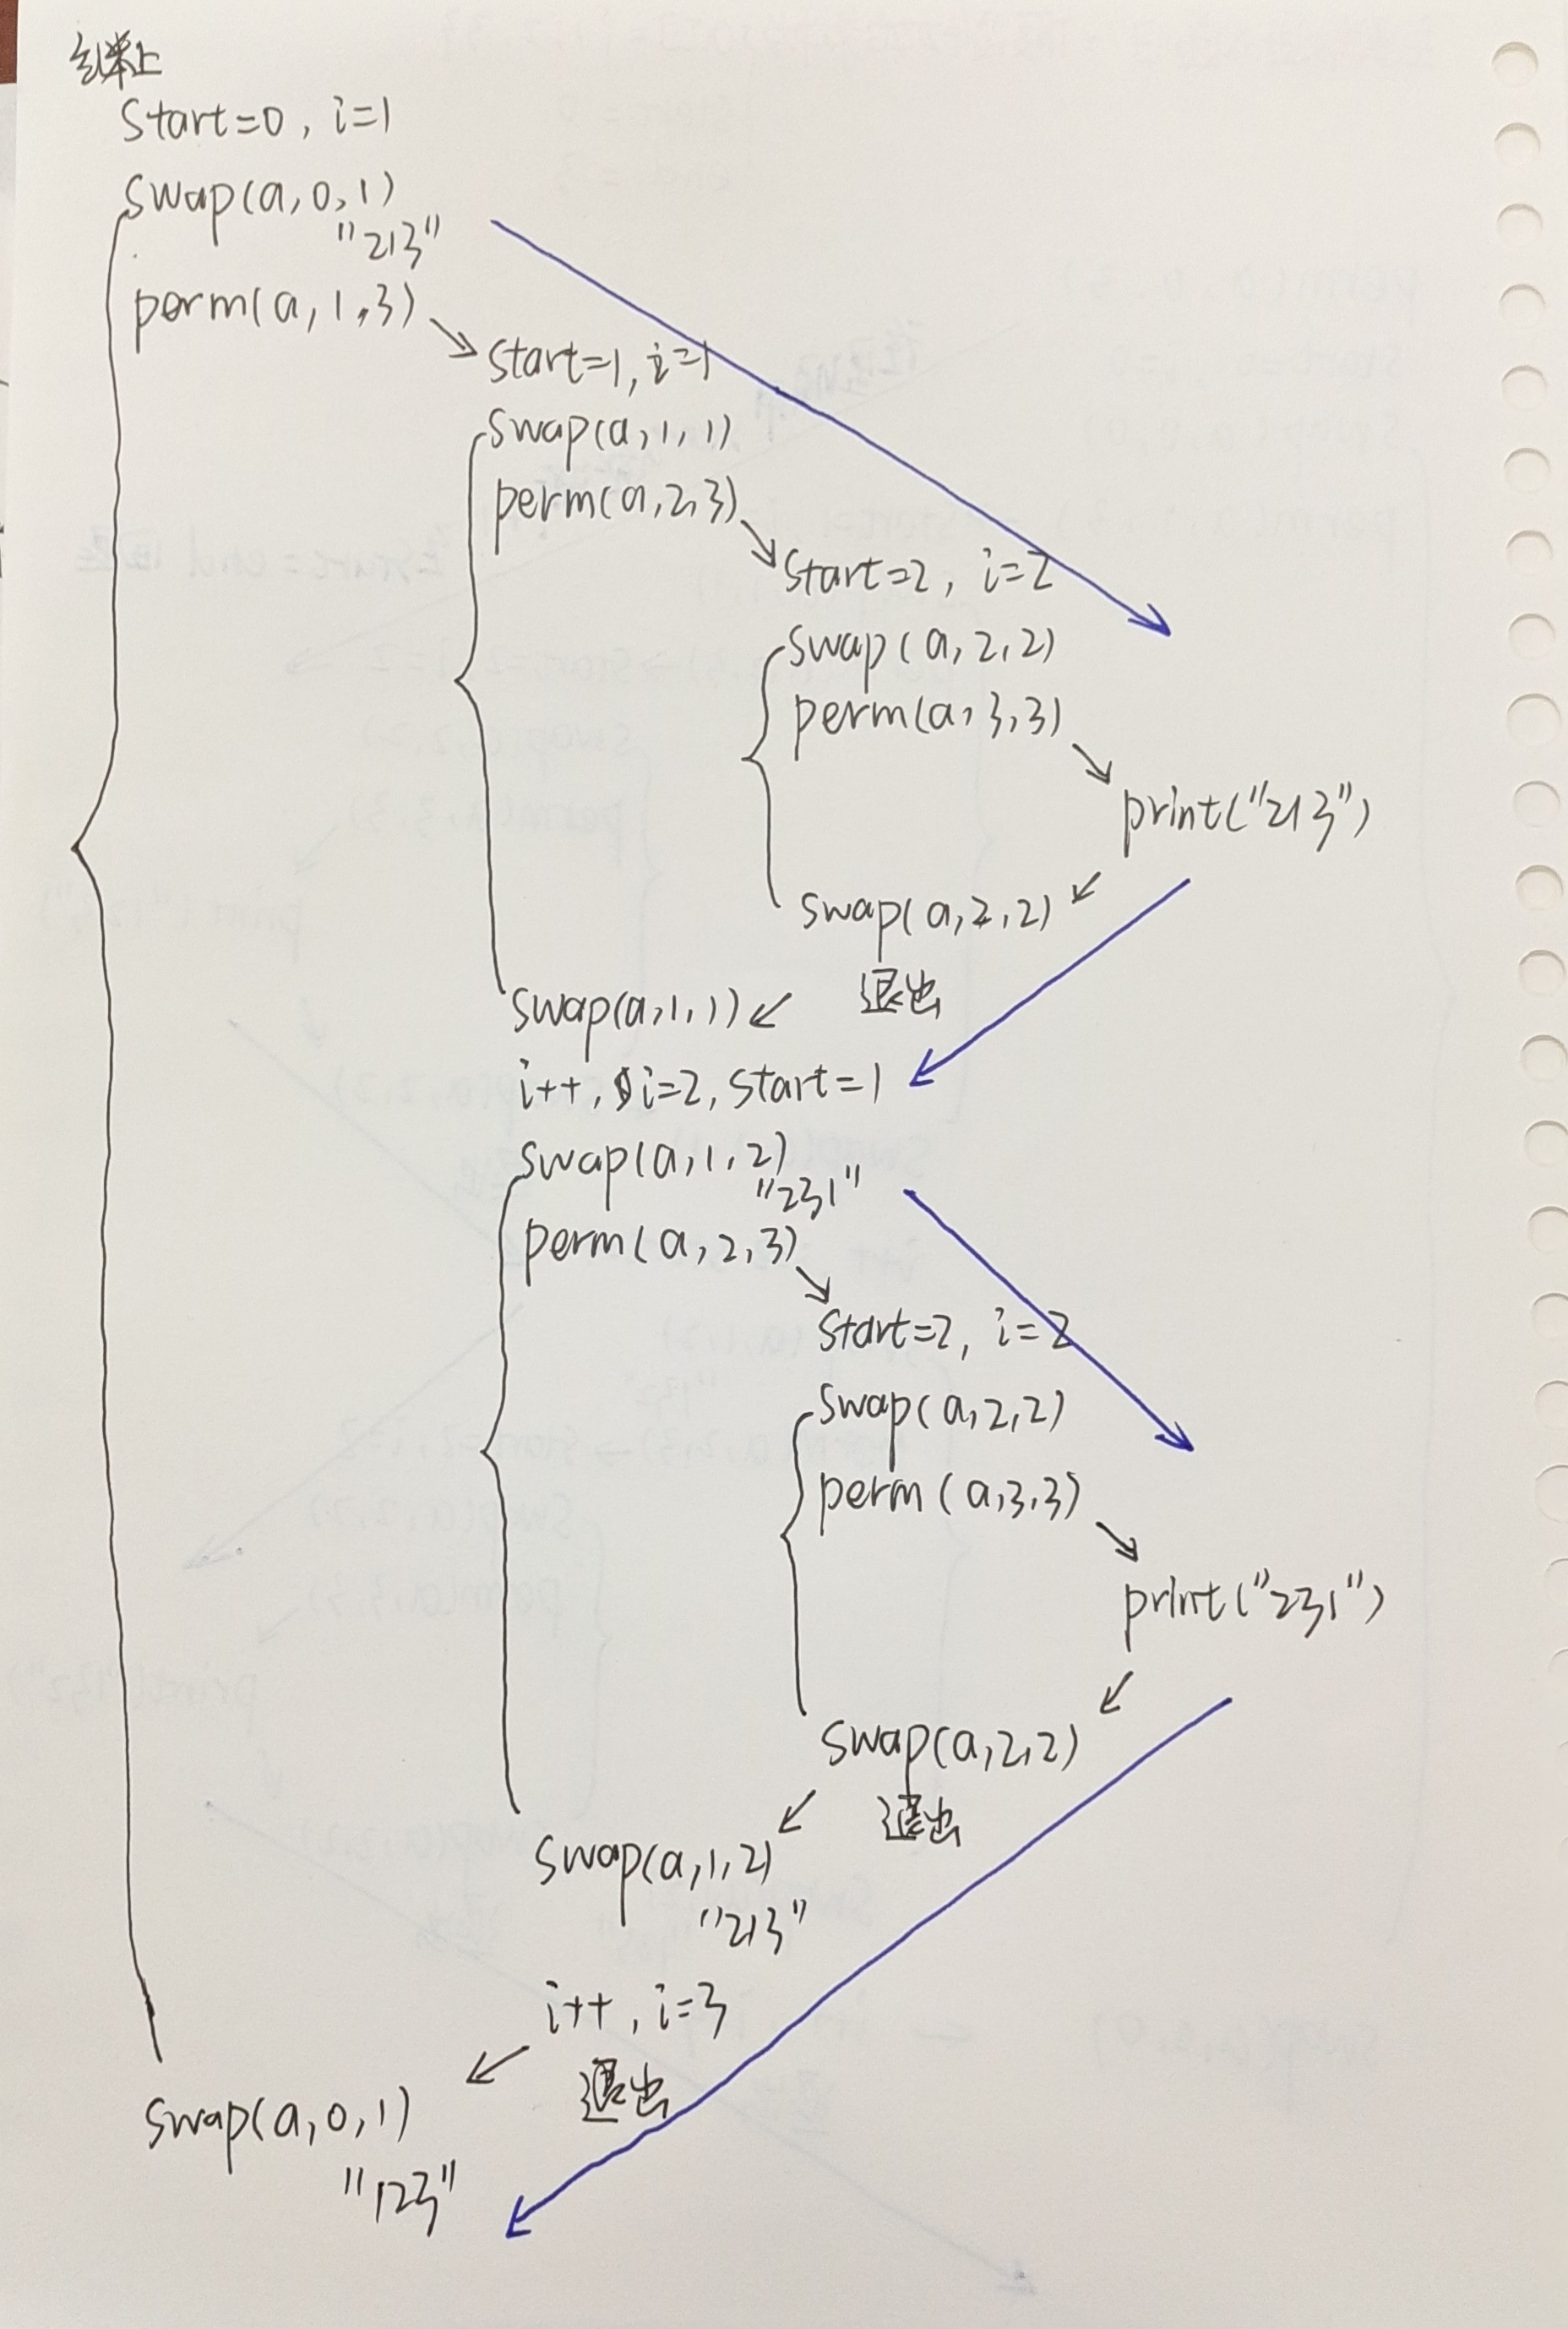 承上
start=0, i=1
swap(a,0,1)
"213"
perm(a,1,3)
start=1, i=1
swap(a,1,1)
perm(a,2,3)
start=2, i=2
swap(a,2,2)
perm(a,3,3)
print("213")
swap(a,2,2)
退出
swap(a,1,1)
i++, i=2, start=1
swap(a,1,2)
"231"
perm(a,2,3)
start=2, i=2
swap(a,2,2)
perm(a,3,3)
print("231")
swap(a,2,2)
退出
swap(a,1,2)
"213"
i++, i=3
退出
swap(a,0,1)
"123"